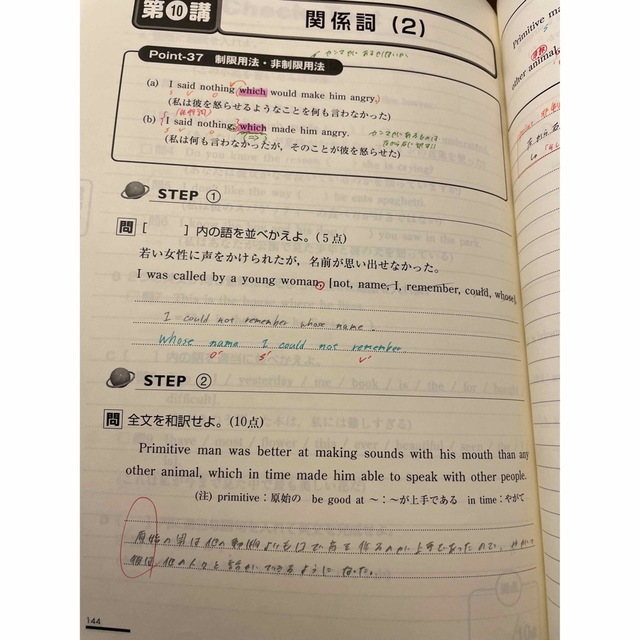 第10講 関係詞 (2)
カンマがあるか
Point-37 制限用法・非制限用法
(a) I said nothing which would make him angry.
(私は彼を怒らせるようなことを何も言わなかった)
(b) I said nothing, which made him angry.
(私は何も言わなかったが，そのことが彼を怒らせた)
STEP ①
問 [ ] 内の語を並べかえよ。(5点)
若い女性に声をかけられたが，名前が思い出せなかった。
I was called by a young woman, [not, name, I, remember, could, whose].
I could not remember whose name.
whose name I could not remember
O' S' V'
STEP ②
問 全文を和訳せよ。(10点)
Primitive man was better at making sounds with his mouth than any
other animal, which in time made him able to speak with other people.
(注) primitive：原始の be good at ～：～が上手である in time：やがて
原始の男は他の動物よりも口で音を作るのが上手であったので、やがて
彼は他の人々と話ができるようになった。
144
Primitive m
other animal